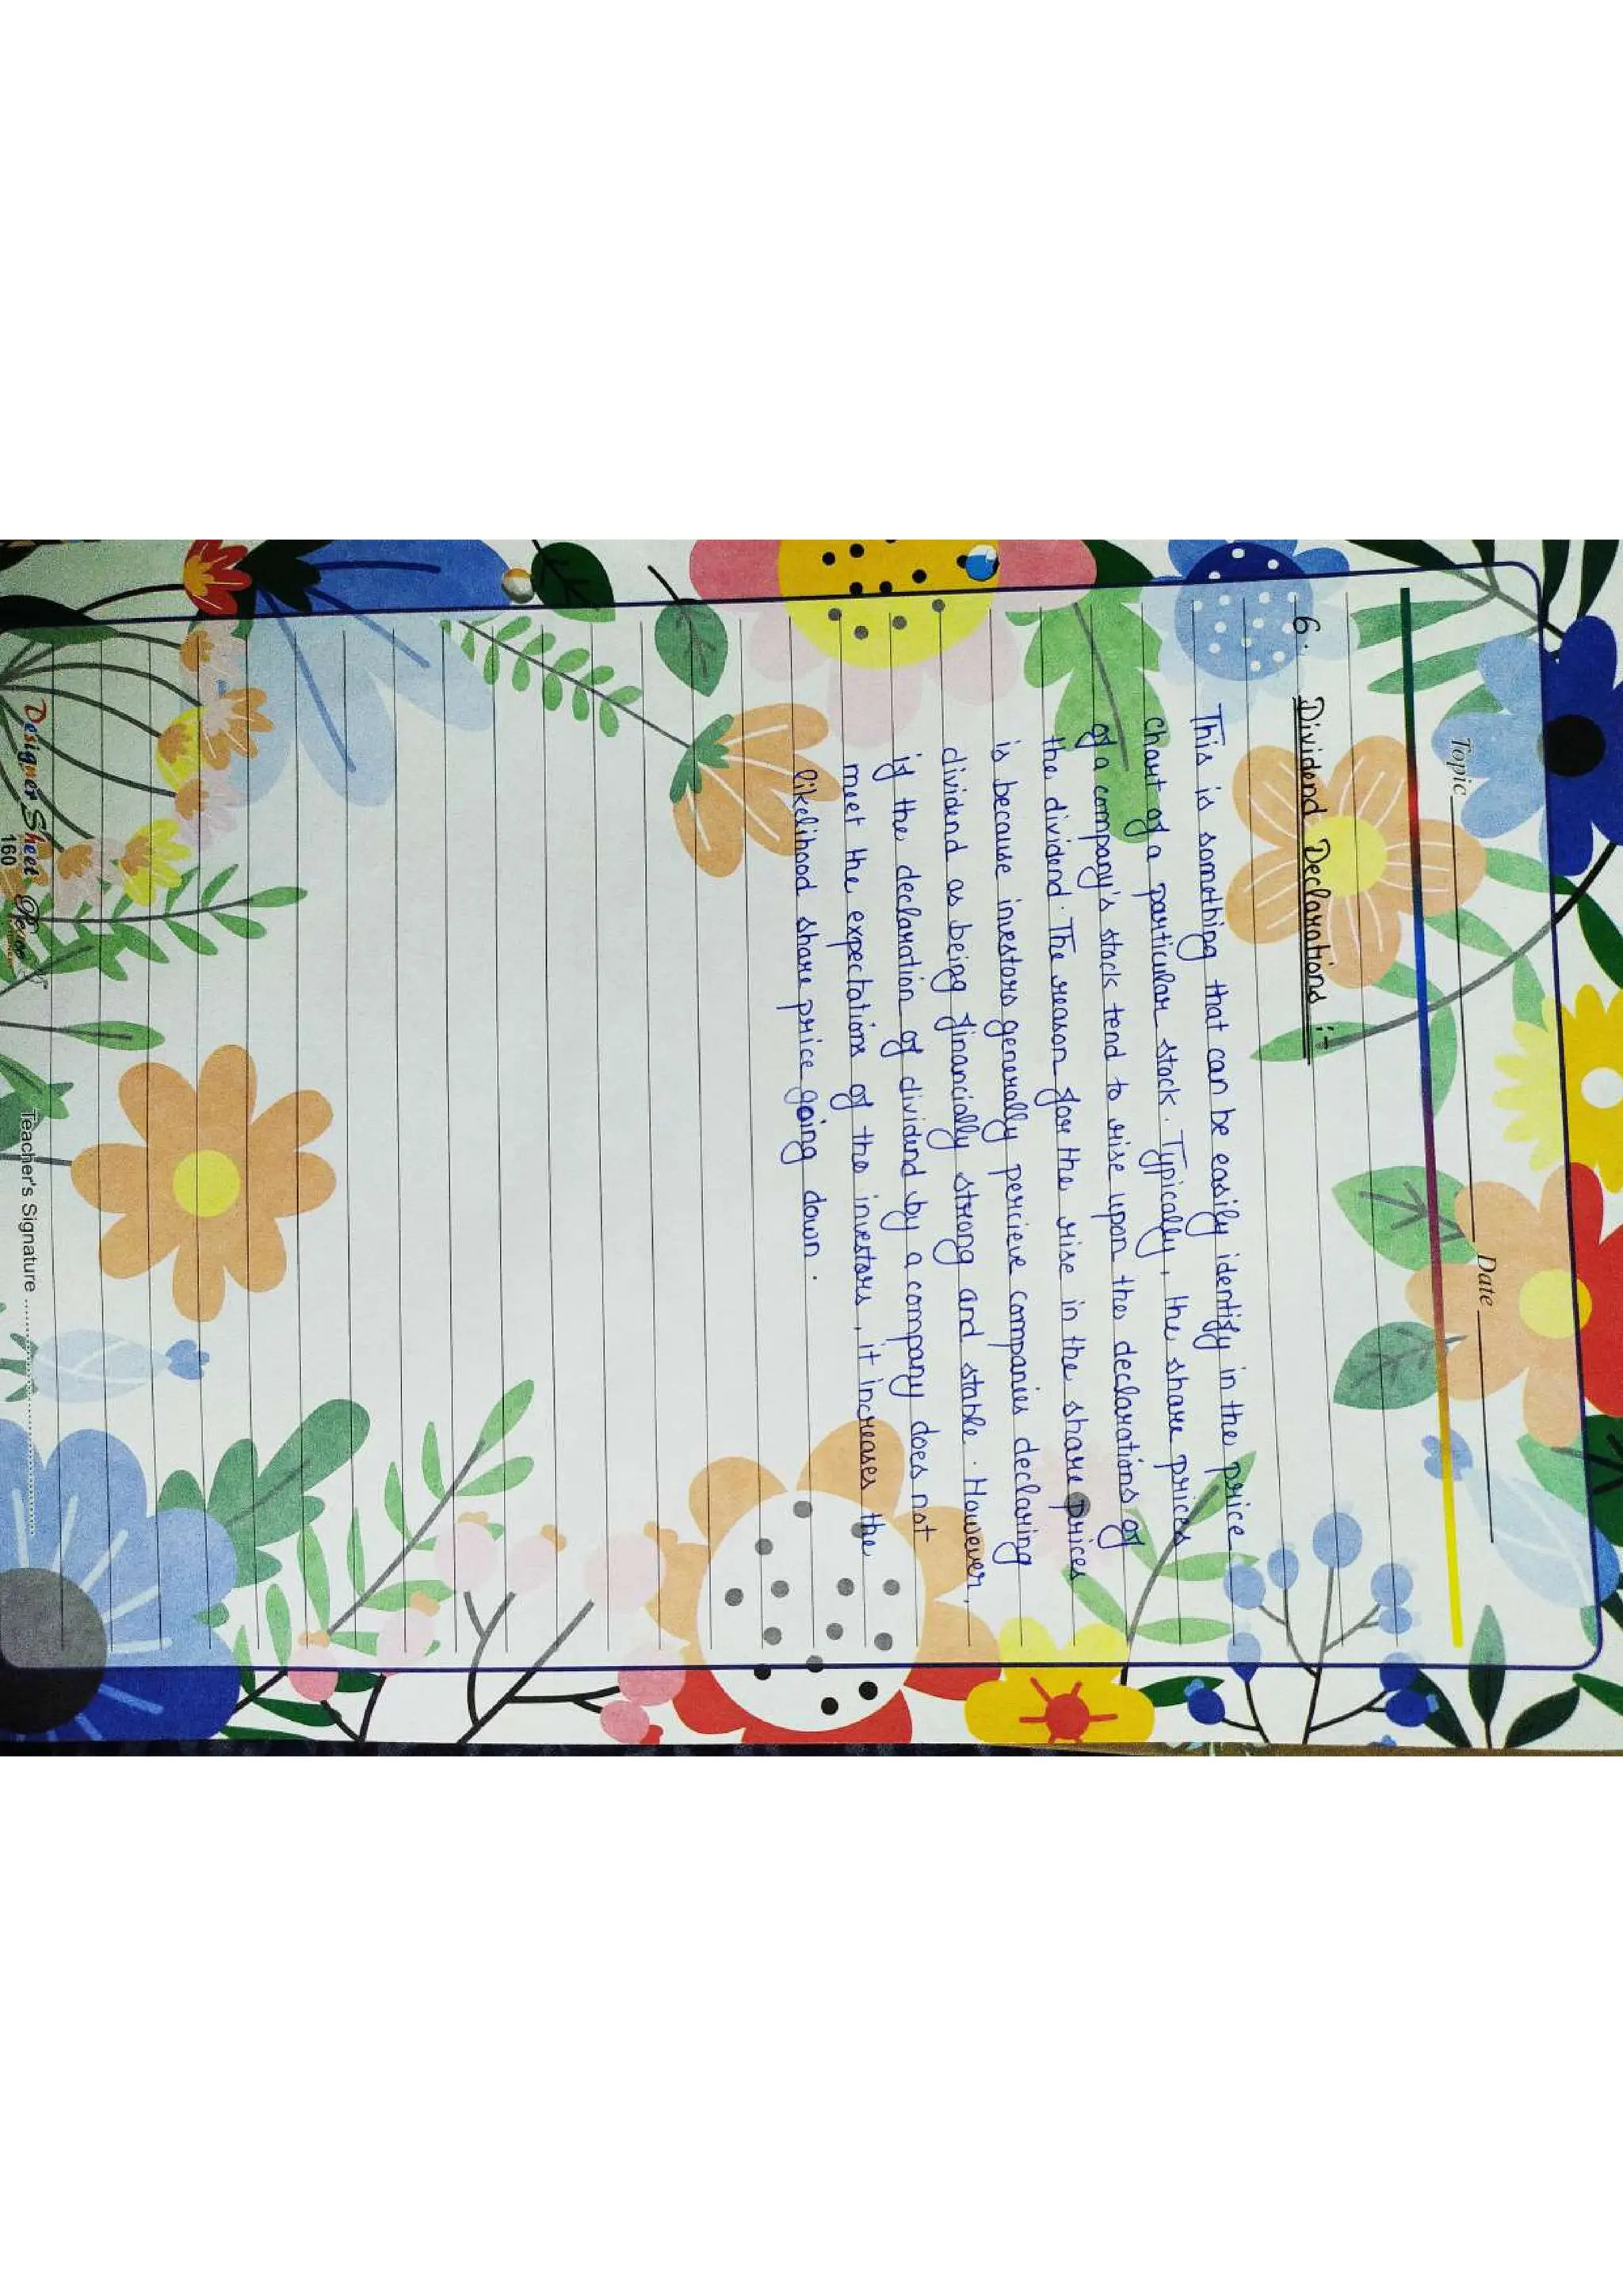 Topic Date
6. Dividend Declarations :-
This is something that can be easily identify in the price
chart of a particular stock. Typically, the share prices
of a company's stock tend to rise upon the declarations of
the dividend. The reason for the rise in the share prices
is because investors generally percieve companies declaring
dividend as being financially strong and stable. However,
if the declaration of dividend by a company does not
meet the expectations of the investors, it increases the
likelihood share price going down.
Designer Sheet
160
Teacher's Signature